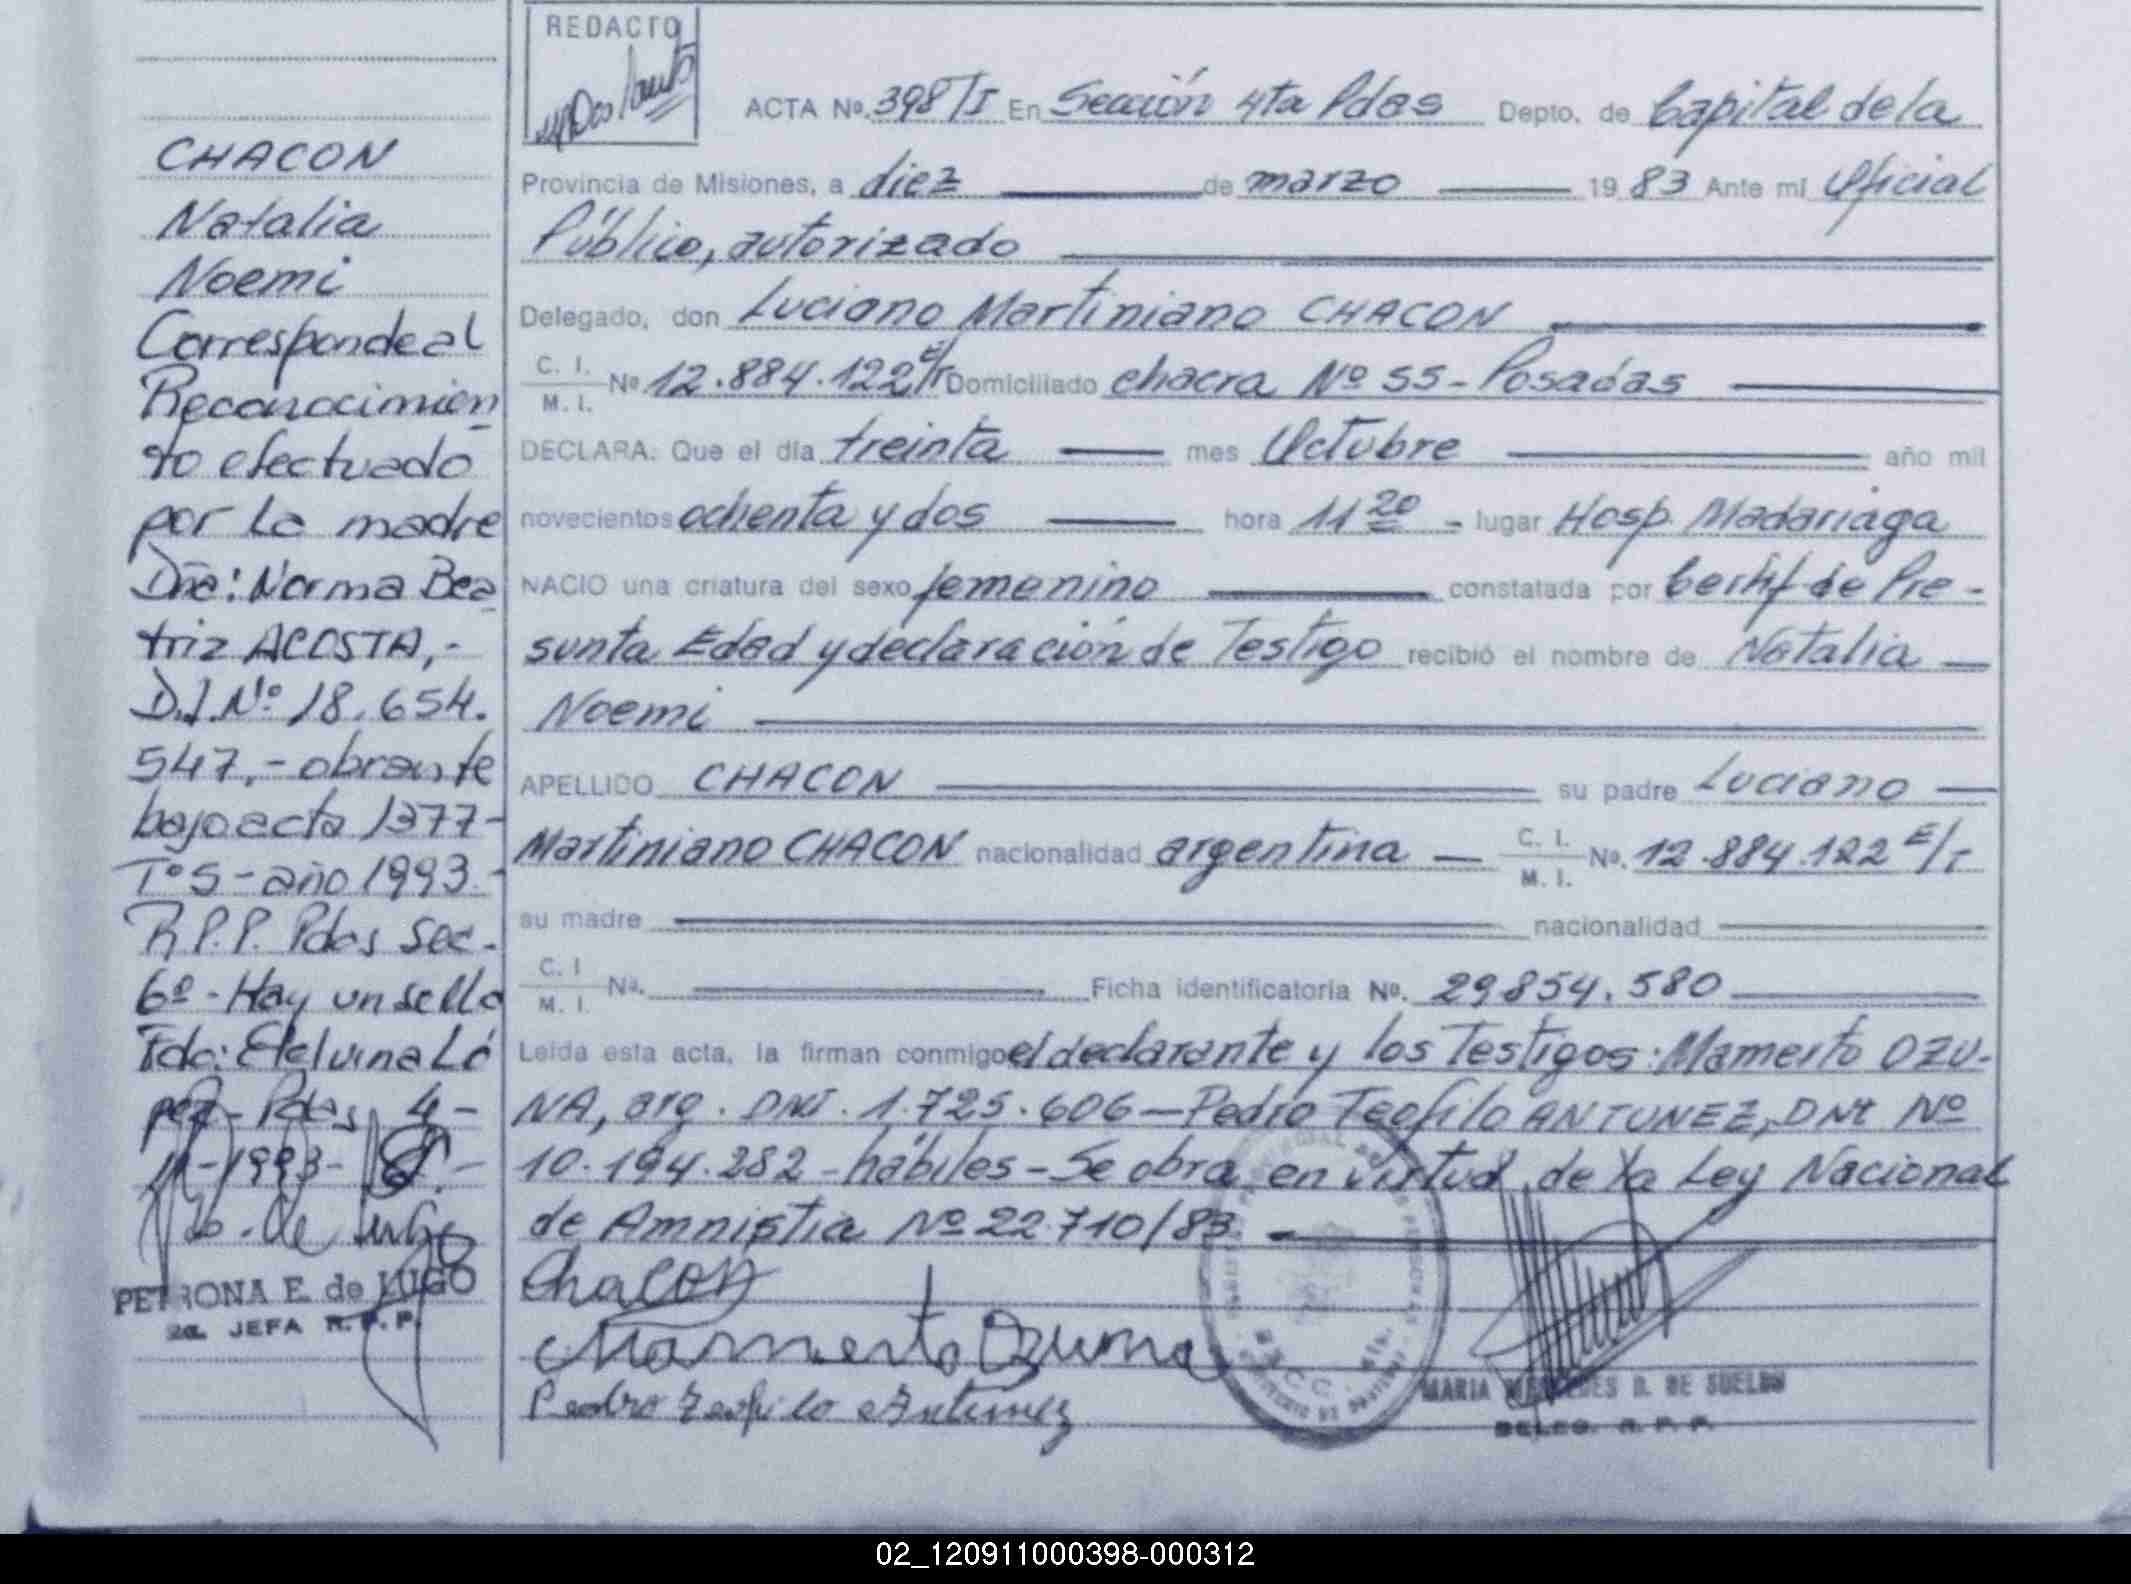 CHACON
Natalia
Noemi
Corresponde al
Reconocimien
to efectuado
por la madre
Dña: Norma Bea
triz ACOSTA,-
D.I. Nº 18.654.
547,- obrante
bajo acta 1377-
Tº5-año 1993.-
R.P.P. Pdas Sec.
6º - Hay un sello
Fdo: Etelvina Ló
pez- Pdas, 4-
11-1993-
PETRONA E. de LUGO
2a. JEFA R.P.P.
REDACTO
ACTA Nº. 398 T/I En Sección 4ta Pdas Depto. de Capital de la
Provincia de Misiones, a diez de marzo 19 83 Ante mi Oficial
Público, autorizado
Delegado, don Luciano Martiniano CHACON
C. I. M. I. Nº 12.884.122 E/T Domiciliado chacra Nº 55 - Posadas
DECLARA: Que el día treinta mes Octubre año mil
novecientos ochenta y dos hora 11 20 - lugar Hosp. Madariaga
NACIO una criatura del sexo femenino constatada por Certif de Pre-
sunta Edad y declaración de Testigo recibió el nombre de Natalia
Noemi
APELLIDO CHACON su padre Luciano
Martiniano CHACON nacionalidad argentina C. I. M. I. Nº. 12.884.122 E/T
su madre nacionalidad
C. I M. I. Nº. Ficha identificatoria Nº. 29854.580
Leída esta acta, la firman conmigo el declarante y los Testigos: Mamerto OZU-
NA, arg. DNI. 1.725.606—Pedro Teofilo ANTUNEZ, DNI Nº
10.194.282 - hábiles - Se obra en virtud de la Ley Nacional
de Amnistia Nº 22.710/83
Chacon
Mamerto Ozuna
Pedro Teofilo Antunez
MARIA MERCEDES D. DE SUELDO
DELEG. R. P. P.
02_120911000398-000312